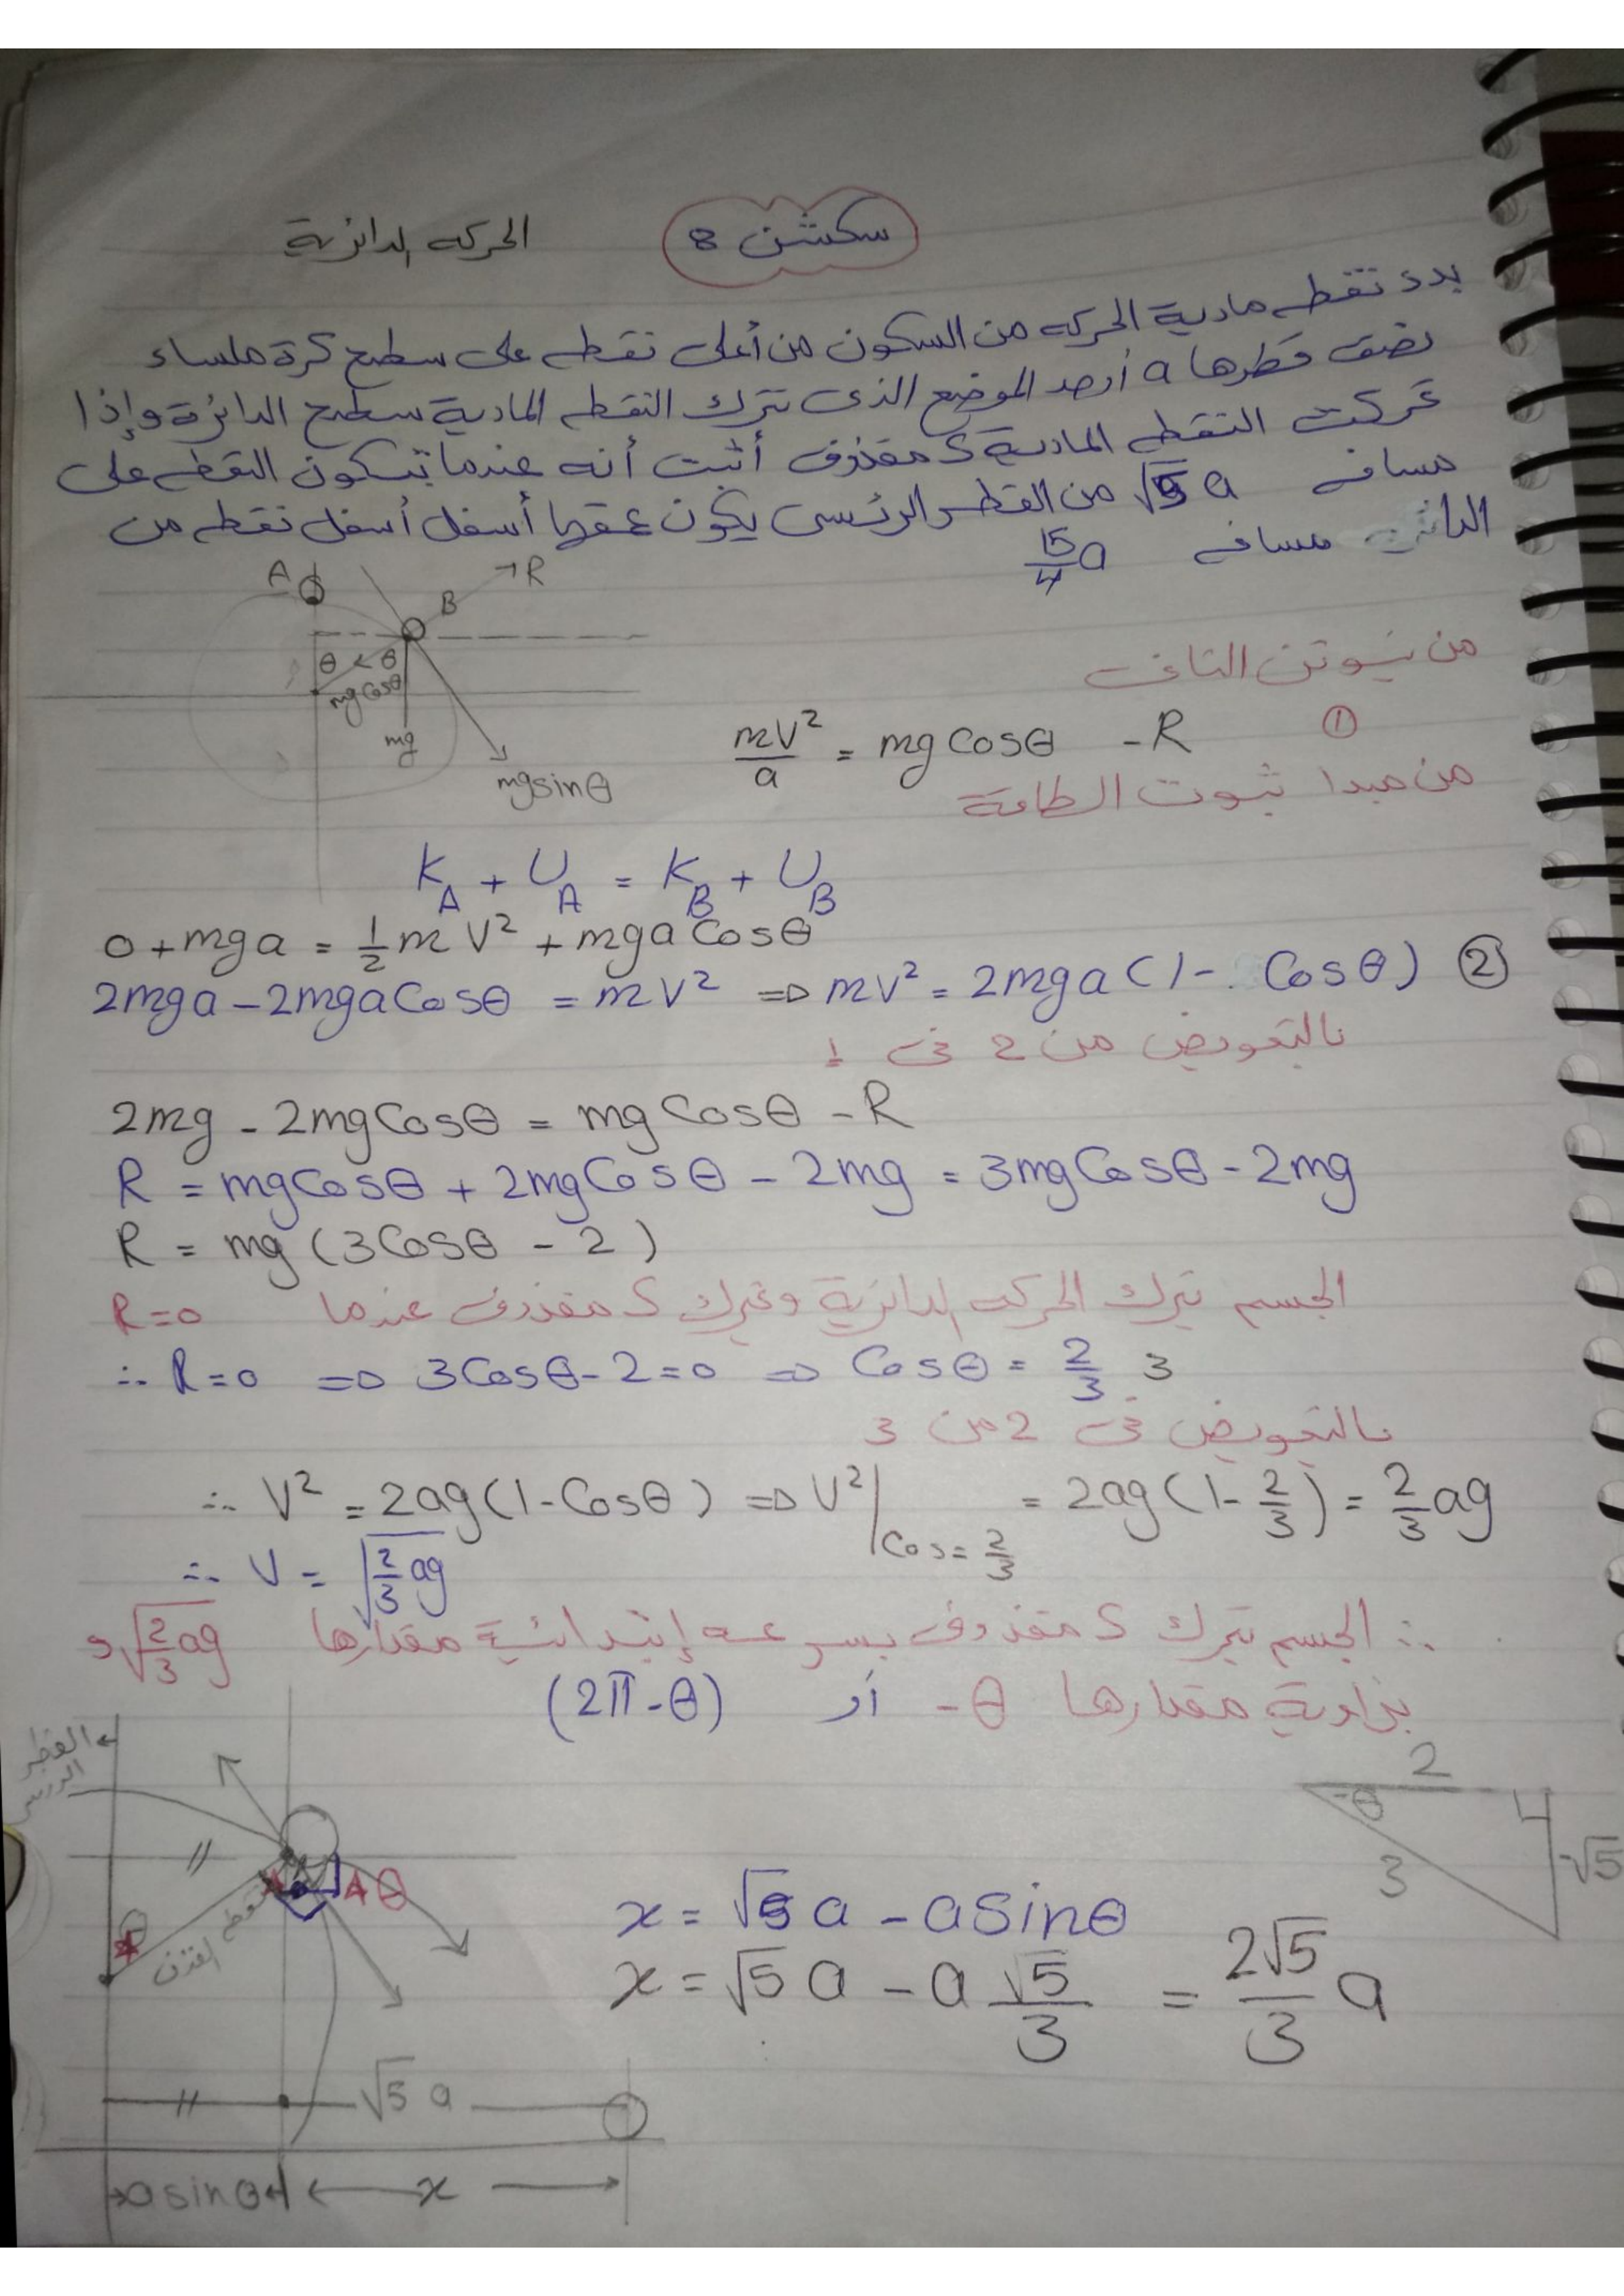 سكشن 8
الحركه الدائرية
بدء نقطه مادية الحركه من السكون من أعلى نقطه على سطح كرة ملساء
نصف قطرها a أوجد الموضع الذى تترك النقطه المادية سطح الدائرة وإذا
تحركت النقطه المادية كمقذوف أثبت أنه عندما تكون النقطه على
مسافه √5 a من القطر الرئسى يكون عمقها أسفل أسفل نقطه من
الدائره مسافه 15/4 a
A
B
R
θ θ
mg cosθ
mg
mg sinθ
من نيوتن الثانى
mV²/a = mg Cosθ - R ①
من مبدا ثبوت الطاقة
K_A + U_A = K_B + U_B
0 + mga = 1/2 m V² + mga Cosθ
2mga - 2mga Cosθ = mV² ⇒ mV² = 2mga (1 - Cosθ) ②
بالتعويض من 2 فى 1
2mg - 2mg Cosθ = mg Cosθ - R
R = mg Cosθ + 2mg Cosθ - 2mg = 3mg Cosθ - 2mg
R = mg (3Cosθ - 2)
الجسم يترك الحركه الدائرية ويتحرك كمقذوف عندما R=0
∴ R=0 ⇒ 3Cosθ - 2 = 0 ⇒ Cosθ = 2/3 3
بالتعويض فى 2 من 3
∴ V² = 2ag (1 - Cosθ) ⇒ V²|Cos = 2/3 = 2ag (1 - 2/3) = 2/3 ag
∴ V = √(2/3 ag)
∴ الجسم يتحرك كمقذوف بسرعه إبتدائية مقدارها √(2/3 ag) و
بزاوية مقدارها -θ أو (2π - θ)
القطر
الرئسى
θ
نقطه القذف
θ
2
-θ
3
-√5
x = √5 a - a sinθ
x = √5 a - a √5/3 = 2√5/3 a
√5 a
a sinθ
x